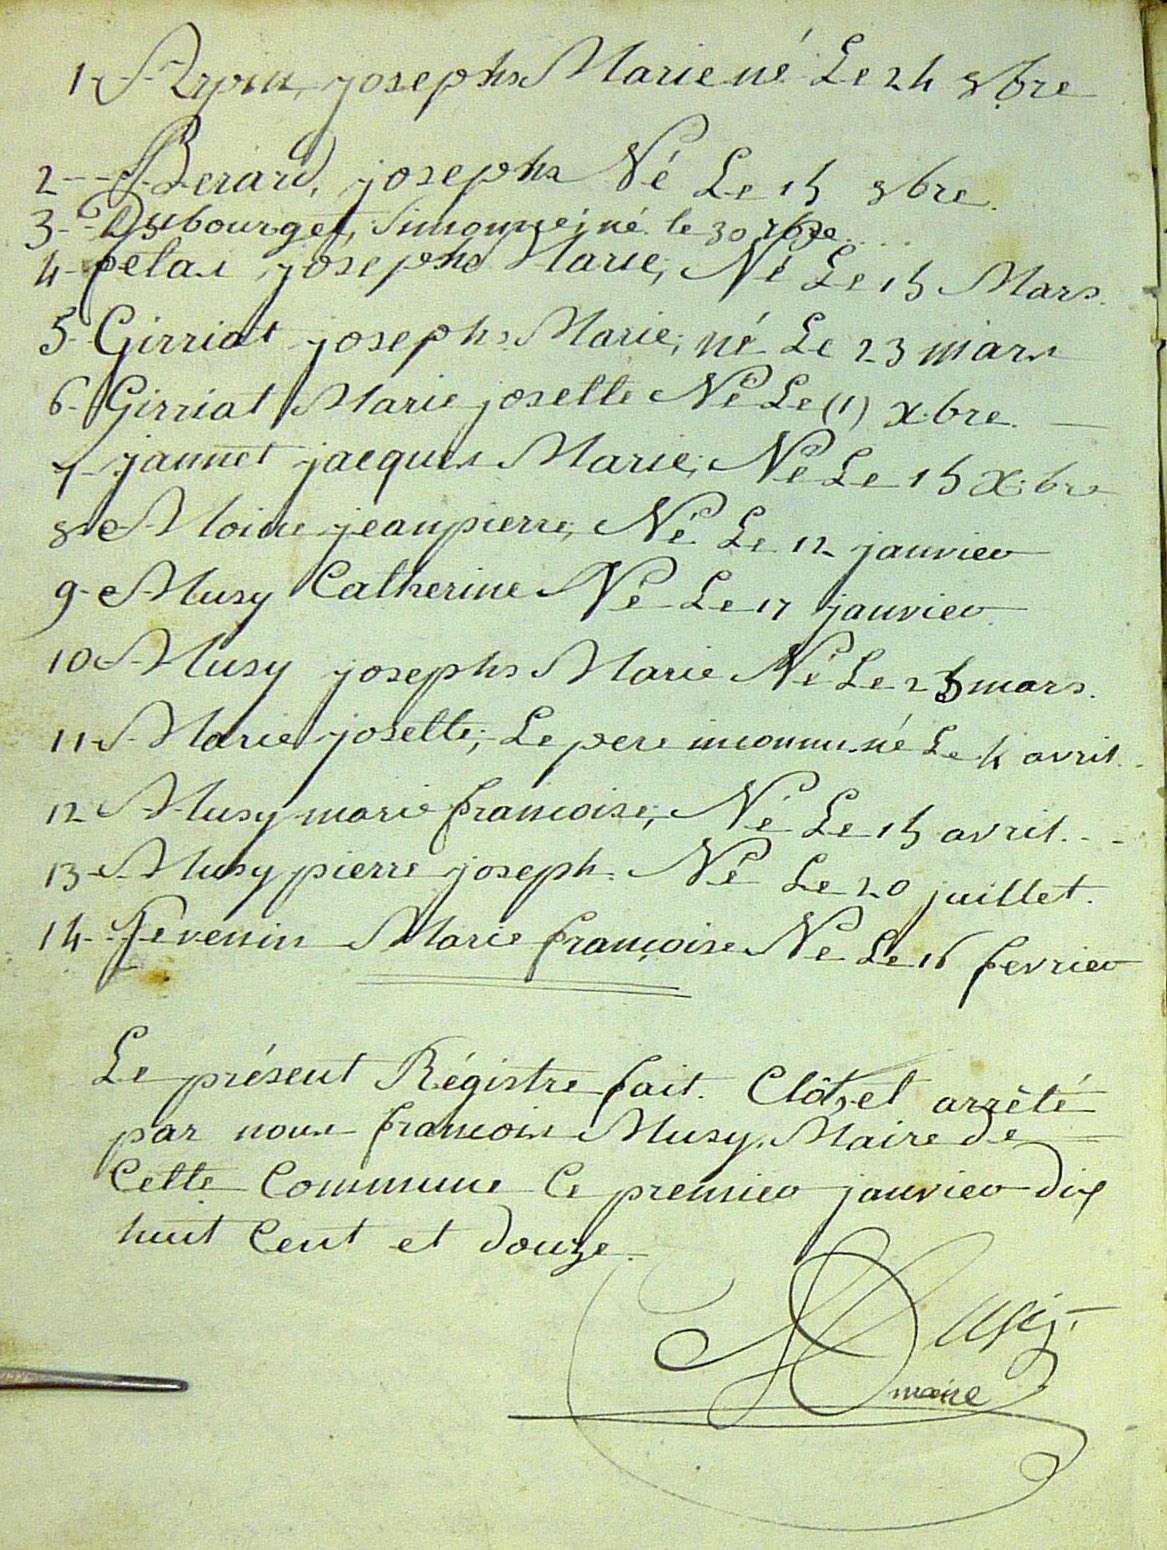 1 - Arpin, josephs Marie né Le 24 8bre
2 - - Berard, josephs Né Le 15 8bre.
3 - Dubourget, Simonne; né le 30 7bre.
4 - felax josephs Marie; Né Le 15 Mars.
5 - Girriat josephs Marie; né Le 23 mars
6 - Girriat Marie josette Né Le (1) X.bre. —
7 - jannet jacques Marie; Né Le 15 X.bre
8 - Moine jeanpierre; Né Le 12 janvier
9 - Musy Catherine Né Le 17 janvier.
10 - Musy josephs Marie Né Le 25 mars.
11 - Marie josette; Le pere inconnu né Le 4 avril.
12 - Musy marie francoise; Né Le 15 avril. - -
13 - Musy pierre joseph. Né Le 20 juillet.
14 - fevenin Marie françoise Né Le 16 fevrier
Le présent Régistre fait. Clôt, et arrêté
par nous francois Musy. Maire de
Cette Commune Ce premier janvier dix
huit Cent et douze.
Musy,
maire